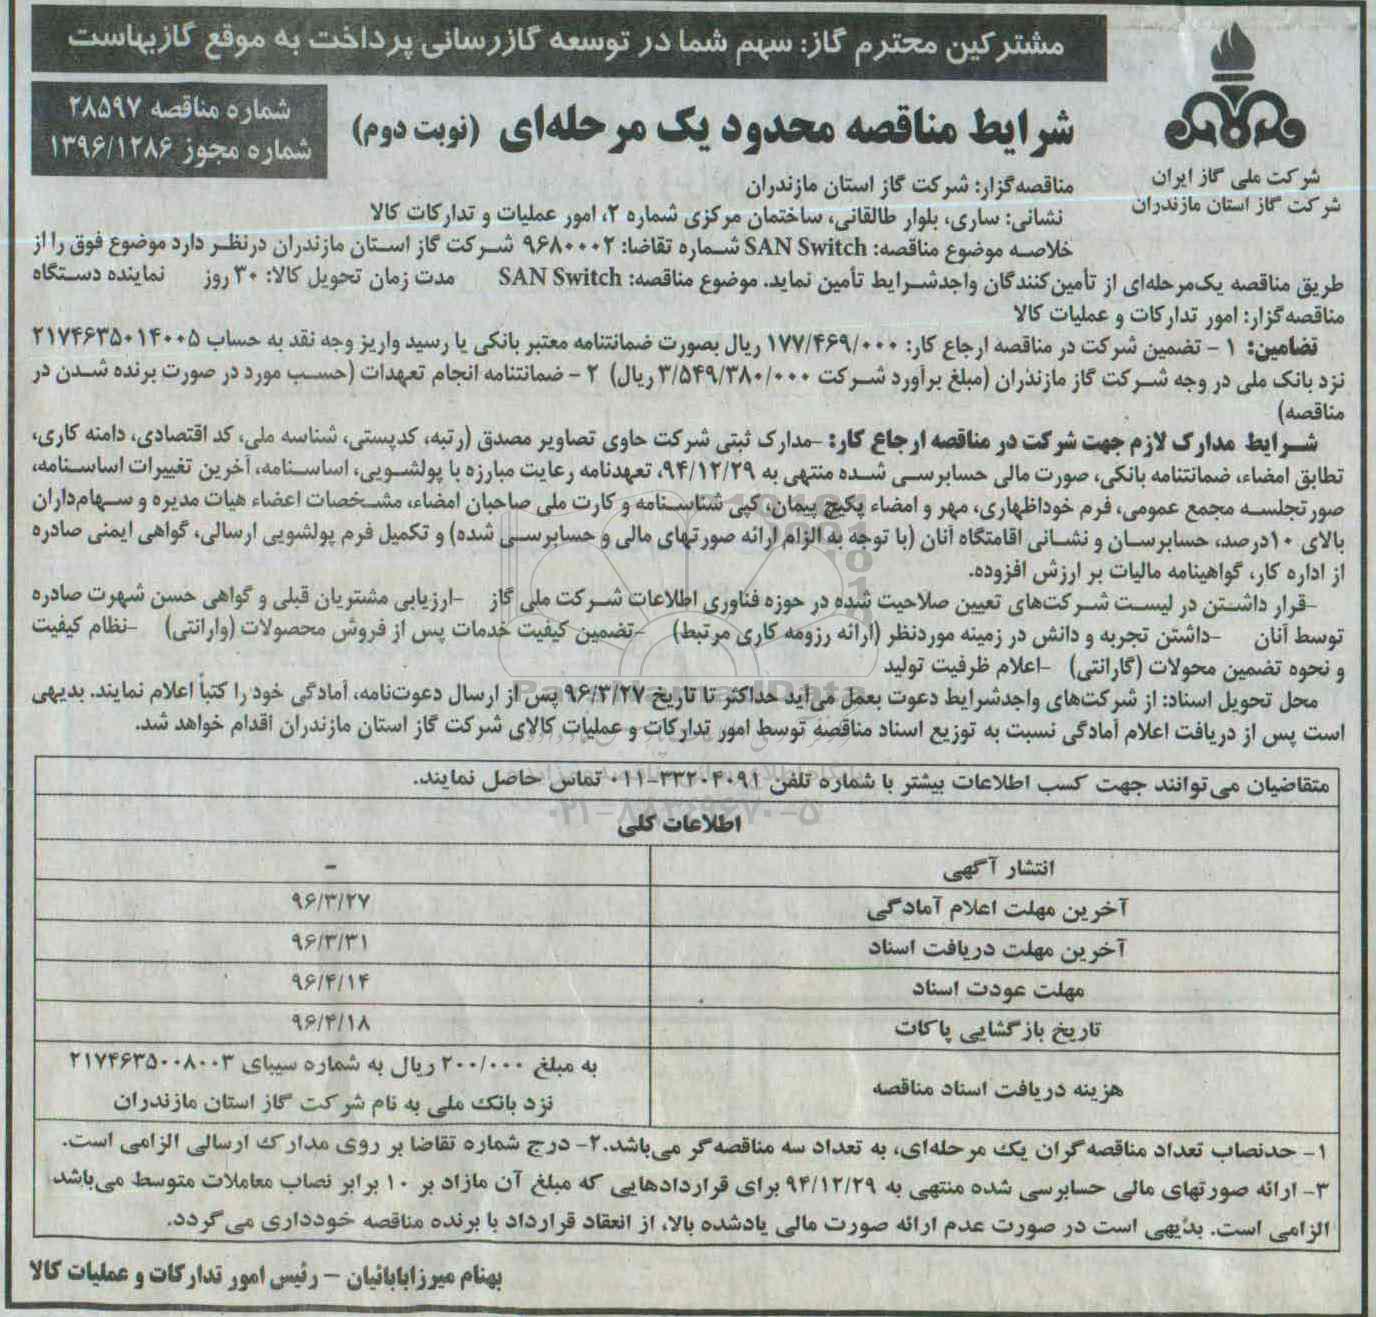 مشترکین محترم گاز: سهم شما در توسعه گازرسانی پرداخت به موقع گازبهاست
شرکت ملی گاز ایران
شرکت گاز استان مازندران
شرایط مناقصه محدود یک مرحله‌ای (نوبت دوم)
شماره مناقصه ۲۸۵۹۷
شماره مجوز ۱۳۹۶/۱۲۸۶
مناقصه‌گزار: شرکت گاز استان مازندران
نشانی: ساری، بلوار طالقانی، ساختمان مرکزی شماره ۲، امور عملیات و تدارکات کالا
خلاصه موضوع مناقصه: SAN Switch شماره تقاضا: ۹۶۸۰۰۰۲ شرکت گاز استان مازندران درنظر دارد موضوع فوق را از
طریق مناقصه یک‌مرحله‌ای از تأمین‌کنندگان واجدشرایط تأمین نماید. موضوع مناقصه: SAN Switch مدت زمان تحویل کالا: ۳۰ روز نماینده دستگاه
مناقصه‌گزار: امور تدارکات و عملیات کالا
تضامین: ۱ - تضمین شرکت در مناقصه ارجاع کار: ۱۷۷/۴۶۹/۰۰۰ ریال بصورت ضمانتنامه معتبر بانکی یا رسید واریز وجه نقد به حساب ۲۱۷۴۶۳۵۰۱۴۰۰۵
نزد بانک ملی در وجه شرکت گاز مازندران (مبلغ برآورد شرکت ۳/۵۴۹/۳۸۰/۰۰۰ ریال) ۲ - ضمانتنامه انجام تعهدات (حسب مورد در صورت برنده شدن در
مناقصه)
شرایط مدارک لازم جهت شرکت در مناقصه ارجاع کار: -مدارک ثبتی شرکت حاوی تصاویر مصدق (رتبه، کدپستی، شناسه ملی، کد اقتصادی، دامنه کاری،
تطابق امضاء، ضمانتنامه بانکی، صورت مالی حسابرسی شده منتهی به ۹۴/۱۲/۲۹، تعهدنامه رعایت مبارزه با پولشویی، اساسنامه، آخرین تغییرات اساسنامه،
صورتجلسه مجمع عمومی، فرم خوداظهاری، مهر و امضاء پکیج پیمان، کپی شناسنامه و کارت ملی صاحبان امضاء، مشخصات اعضاء هیات مدیره و سهام‌داران
بالای ۱۰درصد، حسابرسان و نشانی اقامتگاه آنان (با توجه به الزام ارائه صورتهای مالی و حسابرسی شده) و تکمیل فرم پولشویی ارسالی، گواهی ایمنی صادره
از اداره کار، گواهینامه مالیات بر ارزش افزوده.
-قرار داشتن در لیست شرکت‌های تعیین صلاحیت شده در حوزه فناوری اطلاعات شرکت ملی گاز -ارزیابی مشتریان قبلی و گواهی حسن شهرت صادره
توسط آنان -داشتن تجربه و دانش در زمینه موردنظر (ارائه رزومه کاری مرتبط) -تضمین کیفیت خدمات پس از فروش محصولات (وارانتی) -نظام کیفیت
و نحوه تضمین محولات (گارانتی) -اعلام ظرفیت تولید
محل تحویل اسناد: از شرکت‌های واجدشرایط دعوت بعمل می‌آید حداکثر تا تاریخ ۹۶/۳/۲۷ پس از ارسال دعوت‌نامه، آمادگی خود را کتباً اعلام نمایند. بدیهی
است پس از دریافت اعلام آمادگی نسبت به توزیع اسناد مناقصه توسط امور تدارکات و عملیات کالای شرکت گاز استان مازندران اقدام خواهد شد.
متقاضیان می‌توانند جهت کسب اطلاعات بیشتر با شماره تلفن ۳۳۲۰۴۰۹۱-۰۱۱ تماس حاصل نمایند.
۰۲۱-۸۸۳۰۹۶۷۰-۵
اطلاعات کلی
انتشار آگهی -
آخرین مهلت اعلام آمادگی ۹۶/۳/۲۷
آخرین مهلت دریافت اسناد ۹۶/۳/۳۱
مهلت عودت اسناد ۹۶/۴/۱۴
تاریخ بازگشایی پاکات ۹۶/۴/۱۸
هزینه دریافت اسناد مناقصه به مبلغ ۲۰۰/۰۰۰ ریال به شماره سیبای ۲۱۷۴۶۳۵۰۰۸۰۰۳
نزد بانک ملی به نام شرکت گاز استان مازندران
۱- حدنصاب تعداد مناقصه‌گران یک مرحله‌ای، به تعداد سه مناقصه‌گر می‌باشد.۲- درج شماره تقاضا بر روی مدارک ارسالی الزامی است.
۳- ارائه صورتهای مالی حسابرسی شده منتهی به ۹۴/۱۲/۲۹ برای قراردادهایی که مبلغ آن مازاد بر ۱۰ برابر نصاب معاملات متوسط می‌باشد
الزامی است. بدیهی است در صورت عدم ارائه صورت مالی یادشده بالا، از انعقاد قرارداد با برنده مناقصه خودداری می‌گردد.
بهنام میرزابابائیان – رئیس امور تدارکات و عملیات کالا